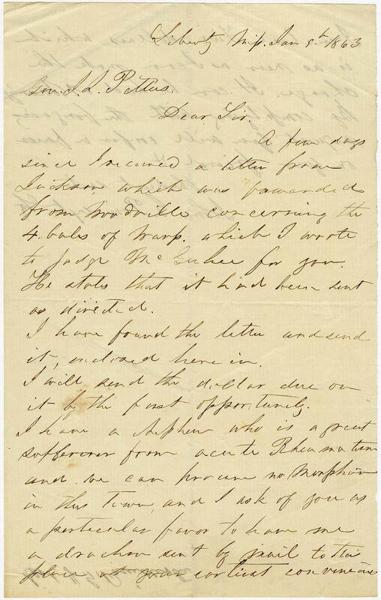 Liberty Mip. Jan 9th 1863
Gov. J. J. Pettus
Dear Sir.
A few days
since I received a letter from
Jackson which was forwarded
from Woodville concerning the
4. bales of Warp. which I wrote
to Judge McGehee for you.
He states that it had been sent
as directed.
I have found the letter and send
it, enclosed here in.
I will send the dollar due on
it by the first opportunity.
I have a Nephew who is a great
sufferer from acute Rheumatism
and we can procure no Morphine
in this Town, and I ask of you as
a particular favor to have me
a drachm sent by mail to this
place at your earliest convenience